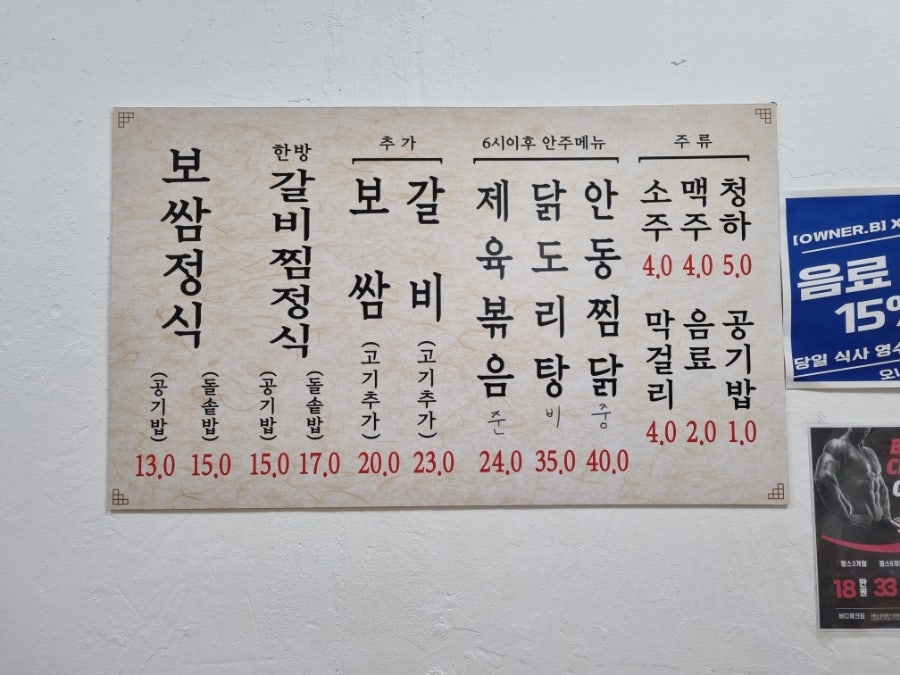 보쌈정식
(공기밥) (돌솥밥)
13.0 15.0
한방
갈비찜정식
(공기밥) (돌솥밥)
15.0 17.0
추가
보쌈 (고기추가)
20.0
갈비 (고기추가)
23.0
6시이후 안주메뉴
제육볶음
24.0
닭도리탕
비
35.0
안동찜닭
중
40.0
주류
소주 맥주 청하
4.0 4.0 5.0
막걸리 음료 공기밥
4.0 2.0 1.0
[OWNER.B] X
음료
15%
당일 식사 영수
오
헬스3개월
18만원 33
바디체크짐